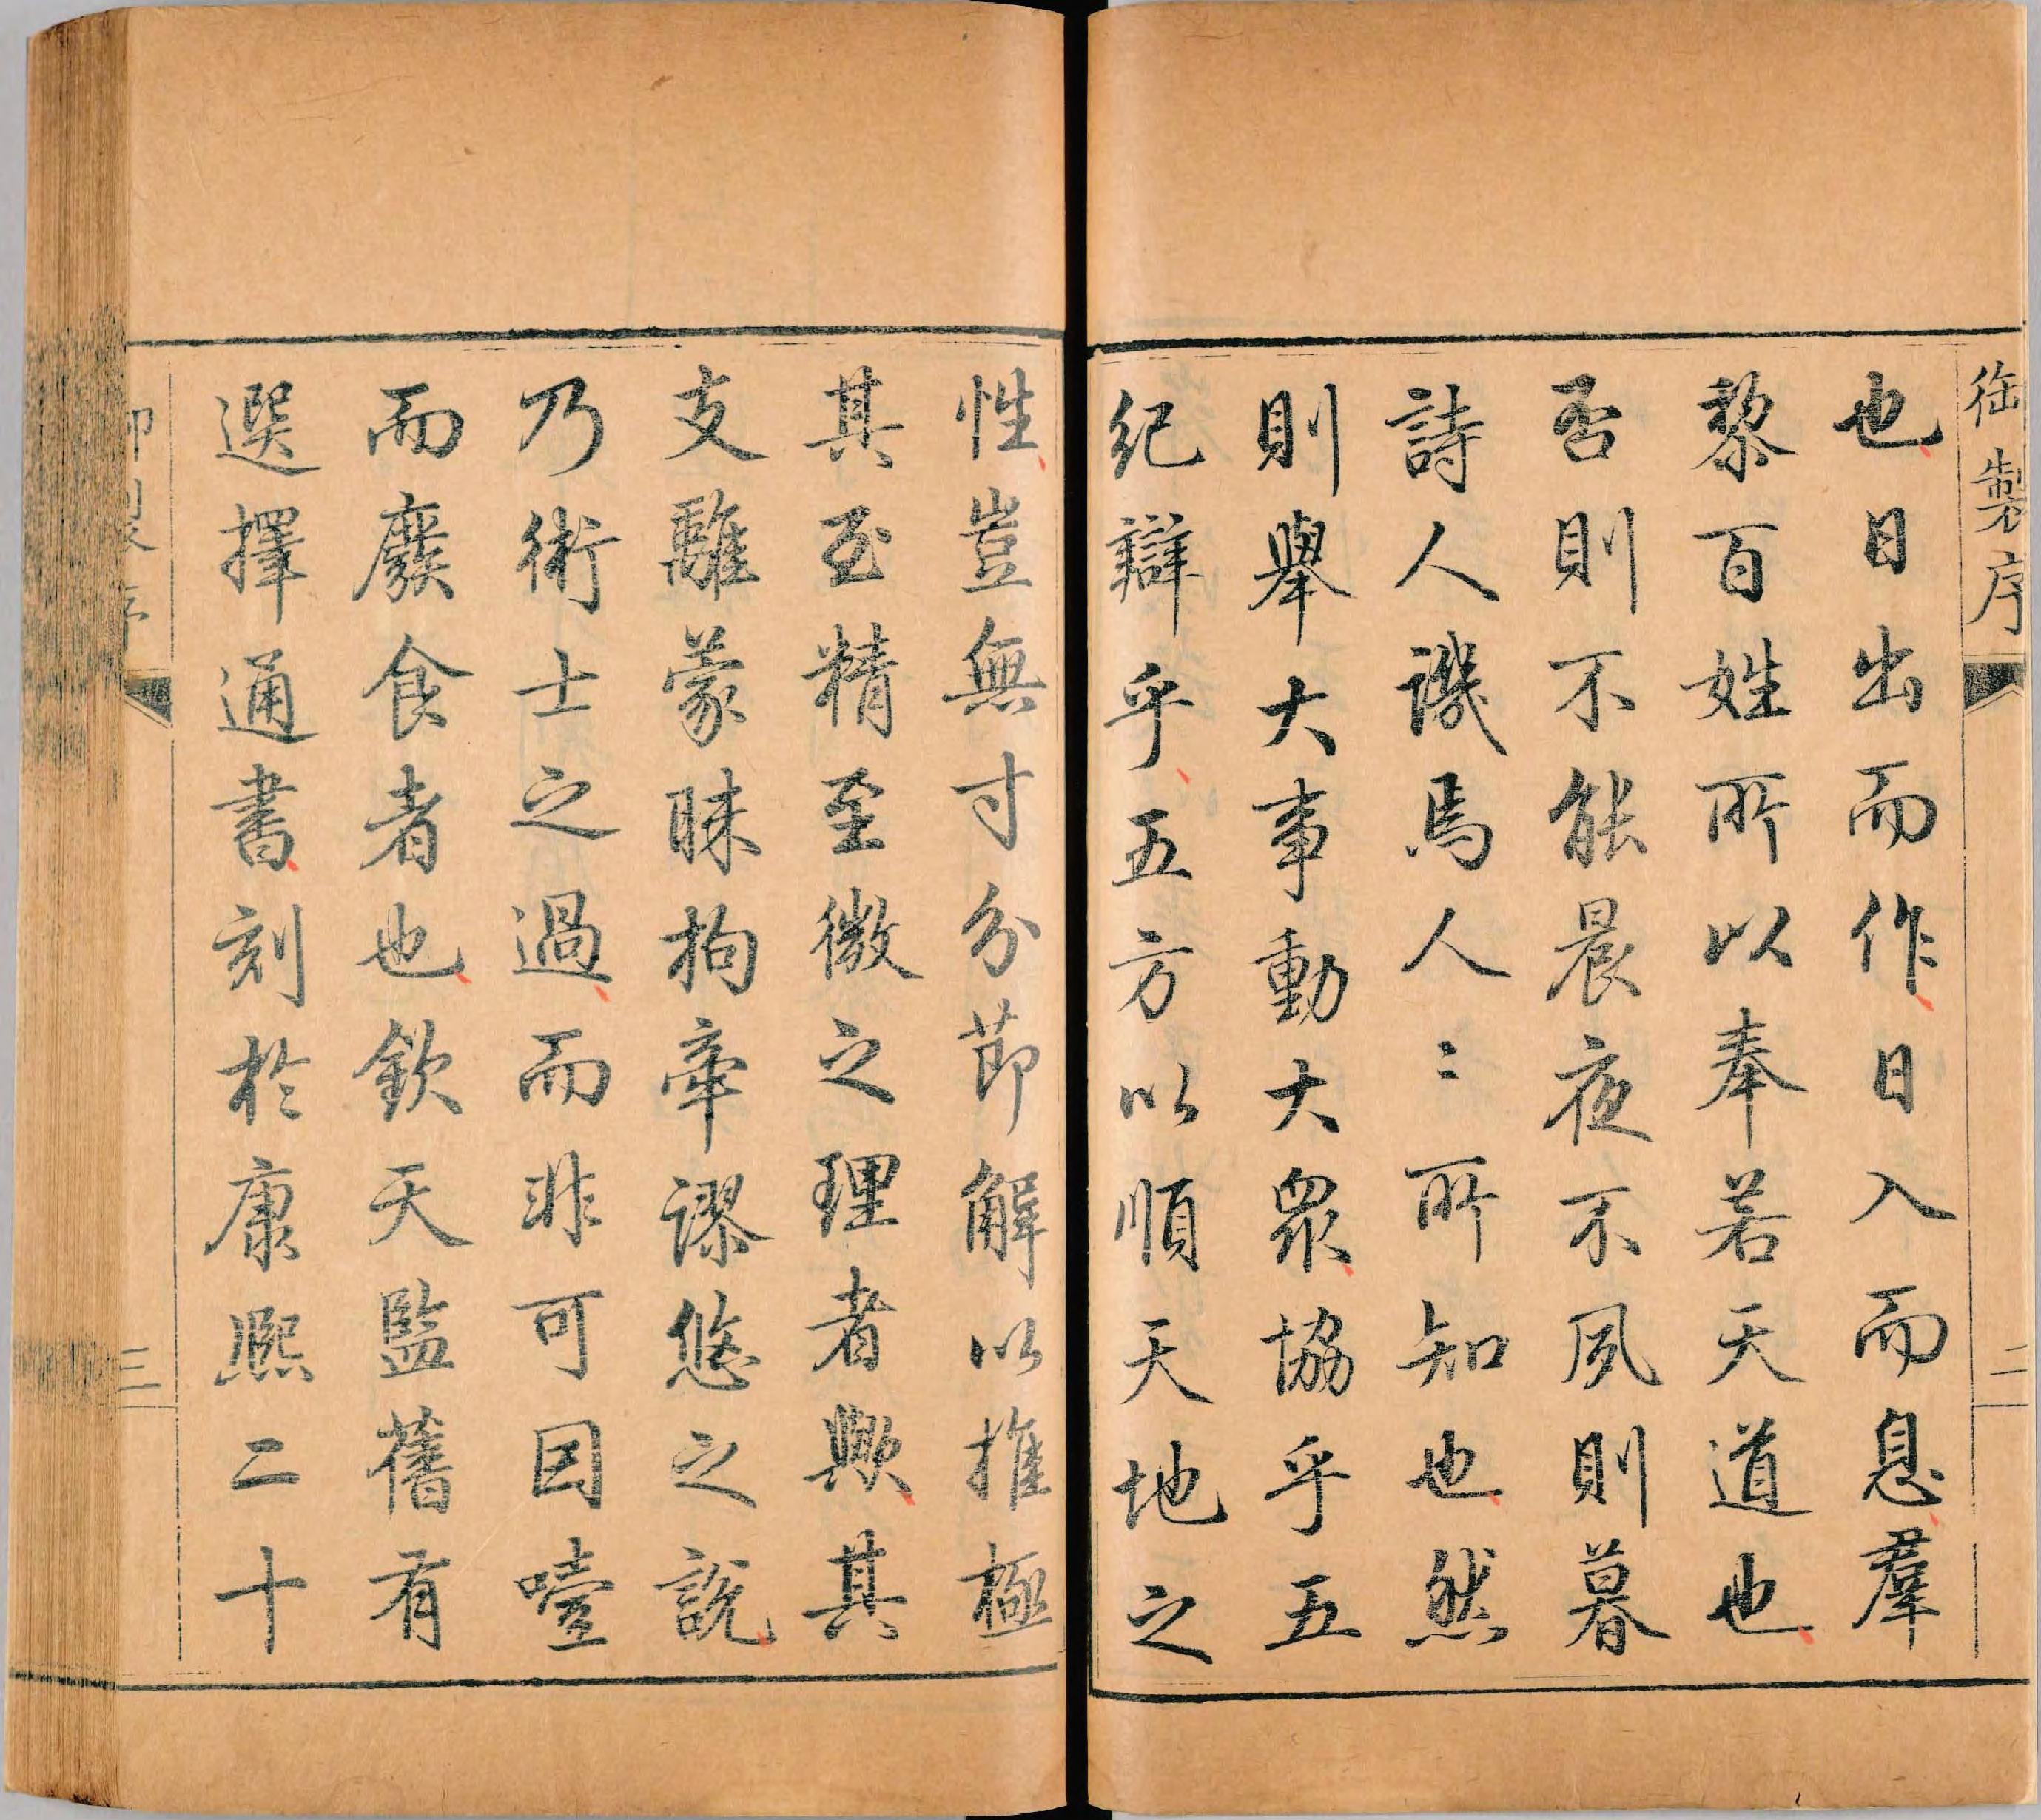 御製序
二
也日出而作日入而息羣
黎百姓所以奉若天道也
否則不能晨夜不夙則暮
詩人譏焉人〻所知也然
則舉大事動大眾協乎五
紀辯乎五方以順天地之
性豈無寸分節解以推極
其至精至微之理者歟其
支離蒙昧拘牽謬悠之說
乃術士之過而非可因噎
而廢食者也欽天監舊有
選擇通書刻於康熙二十
三